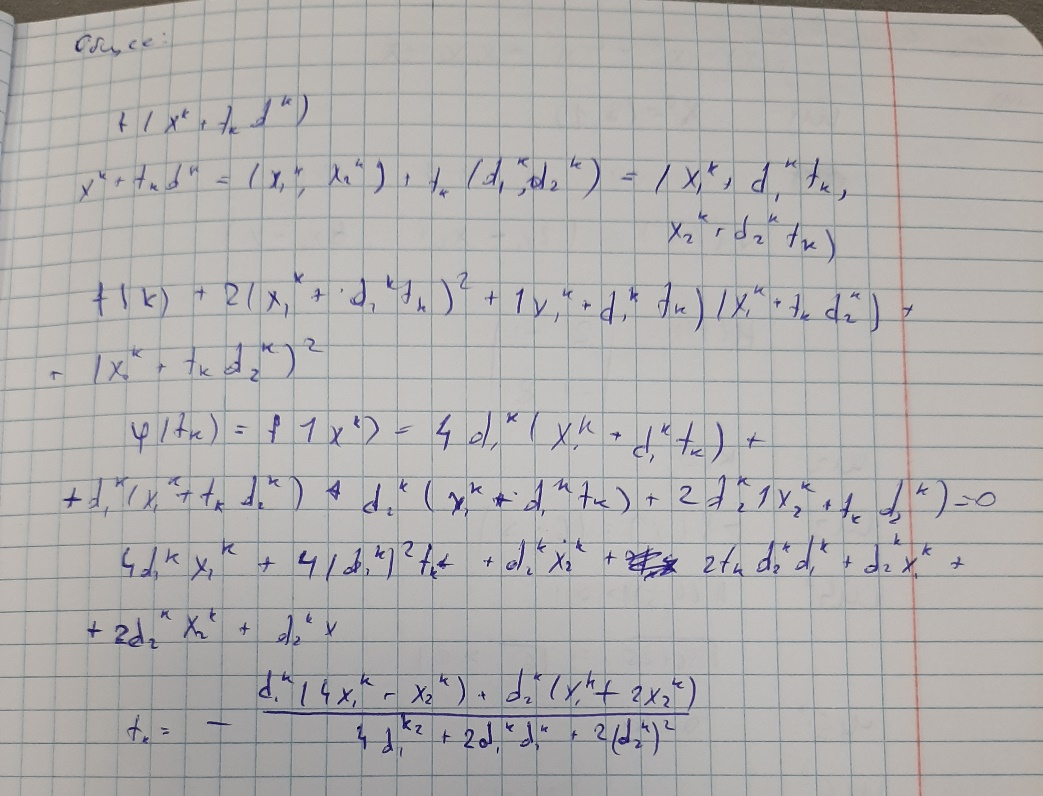 Общее:
f(x^k + t_k d^k)
x^k + t_k d^k = (x_1^k, x_2^k) + t_k (d_1^k, d_2^k) = (x_1^k + d_1^k t_k,
x_2^k + d_2^k t_k)
f(k) + 2(x_1^k + d_1^k t_k)^2 + (x_1^k + d_1^k t_k)(x_2^k + t_k d_2^k) +
+ (x_2^k + t_k d_2^k)^2
φ(t_k) = f(x^k) = 4d_1^k (x_1^k + d_1^k t_k) +
+ d_1^k (x_2^k + t_k d_2^k) + d_2^k (x_1^k + d_1^k t_k) + 2d_2^k (x_2^k + t_k d_2^k) = 0
4d_1^k x_1^k + 4(d_1^k)^2 t_k + d_1^k x_2^k + 2t_k d_2^k d_1^k + d_2^k x_1^k +
+ 2d_2^k x_2^k + d_2^k x
t_k = - \frac{d_1^k (4x_1^k + x_2^k) + d_2^k (x_1^k + 2x_2^k)}{4d_1^{k2} + 2d_1^k d_2^k + 2(d_2^k)^2}